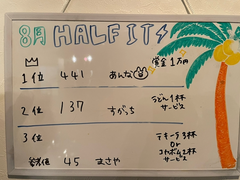 8月 HALF IT
賞金1万円
1位 441 あんな
2位 137 ちがっち
うどん1杯
サービス
3位
テキーラ3杯
or
コカボム2杯
サービス
45 まさや